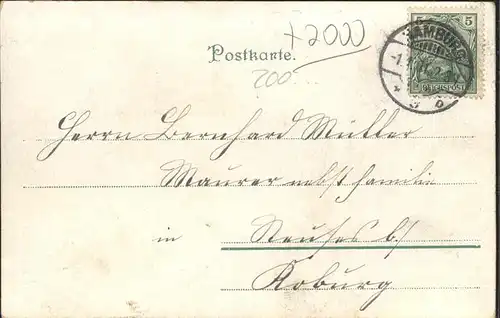 Postkarte.
+2000
200
5 5
HAMBURG
REICHSPOST
Herrn Bernhard Müller
Maurer nebst Familie
in Neuses b/
Koburg